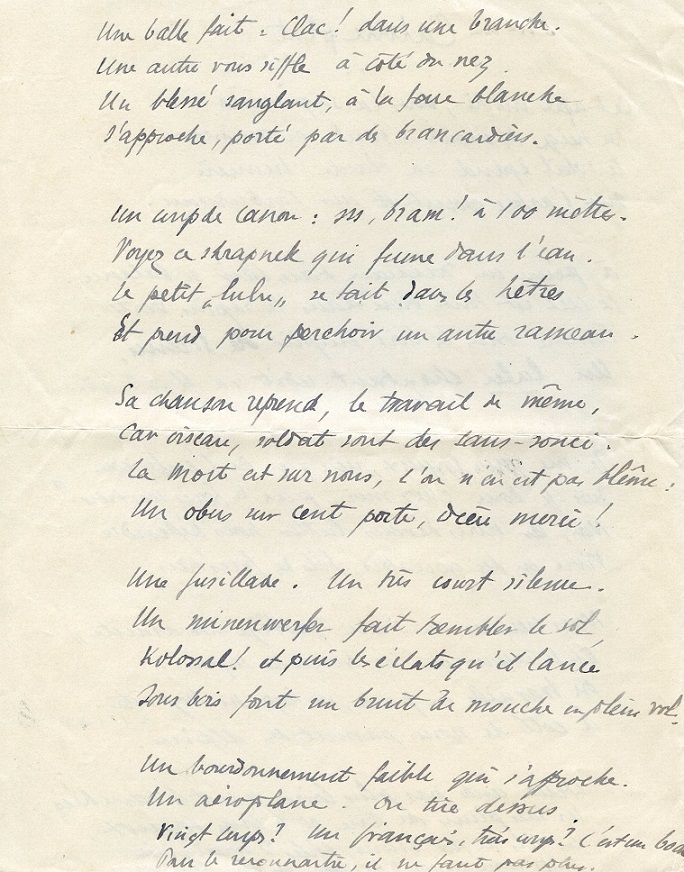 Une balle fait : Clac ! dans une branche.
Une autre vous siffle à côté du nez
Un blessé sanglant, à la face blanche
S'approche, porté par des brancardiers.
Un coup de canon : sss, bram ! à 100 mètres.
Voyez ce shrapnel qui fume dans l'eau.
Le petit „lulu„ se tait dans les hêtres
Et prend pour perchoir un autre rameau.
Sa chanson reprend, le travail de même,
Car oiseau, soldat sont des sans-souci.
La Mort est sur nous, l'on n'en est pas blême :
Un obus sur cent porte, Dieu merci !
Une fusillade. Un très court silence.
Un minenwerfer fait trembler le sol,
Kolossal ! et puis les éclats qu'il lance
Sous bois font un bruit de mouche en plein vol.
Un bourdonnement faible qui s'approche.
Un aéroplane. On tire dessus
Vingt coups ? Un français, trois coups ? C'est un
Pour le reconnaître, il ne faut pas plus.